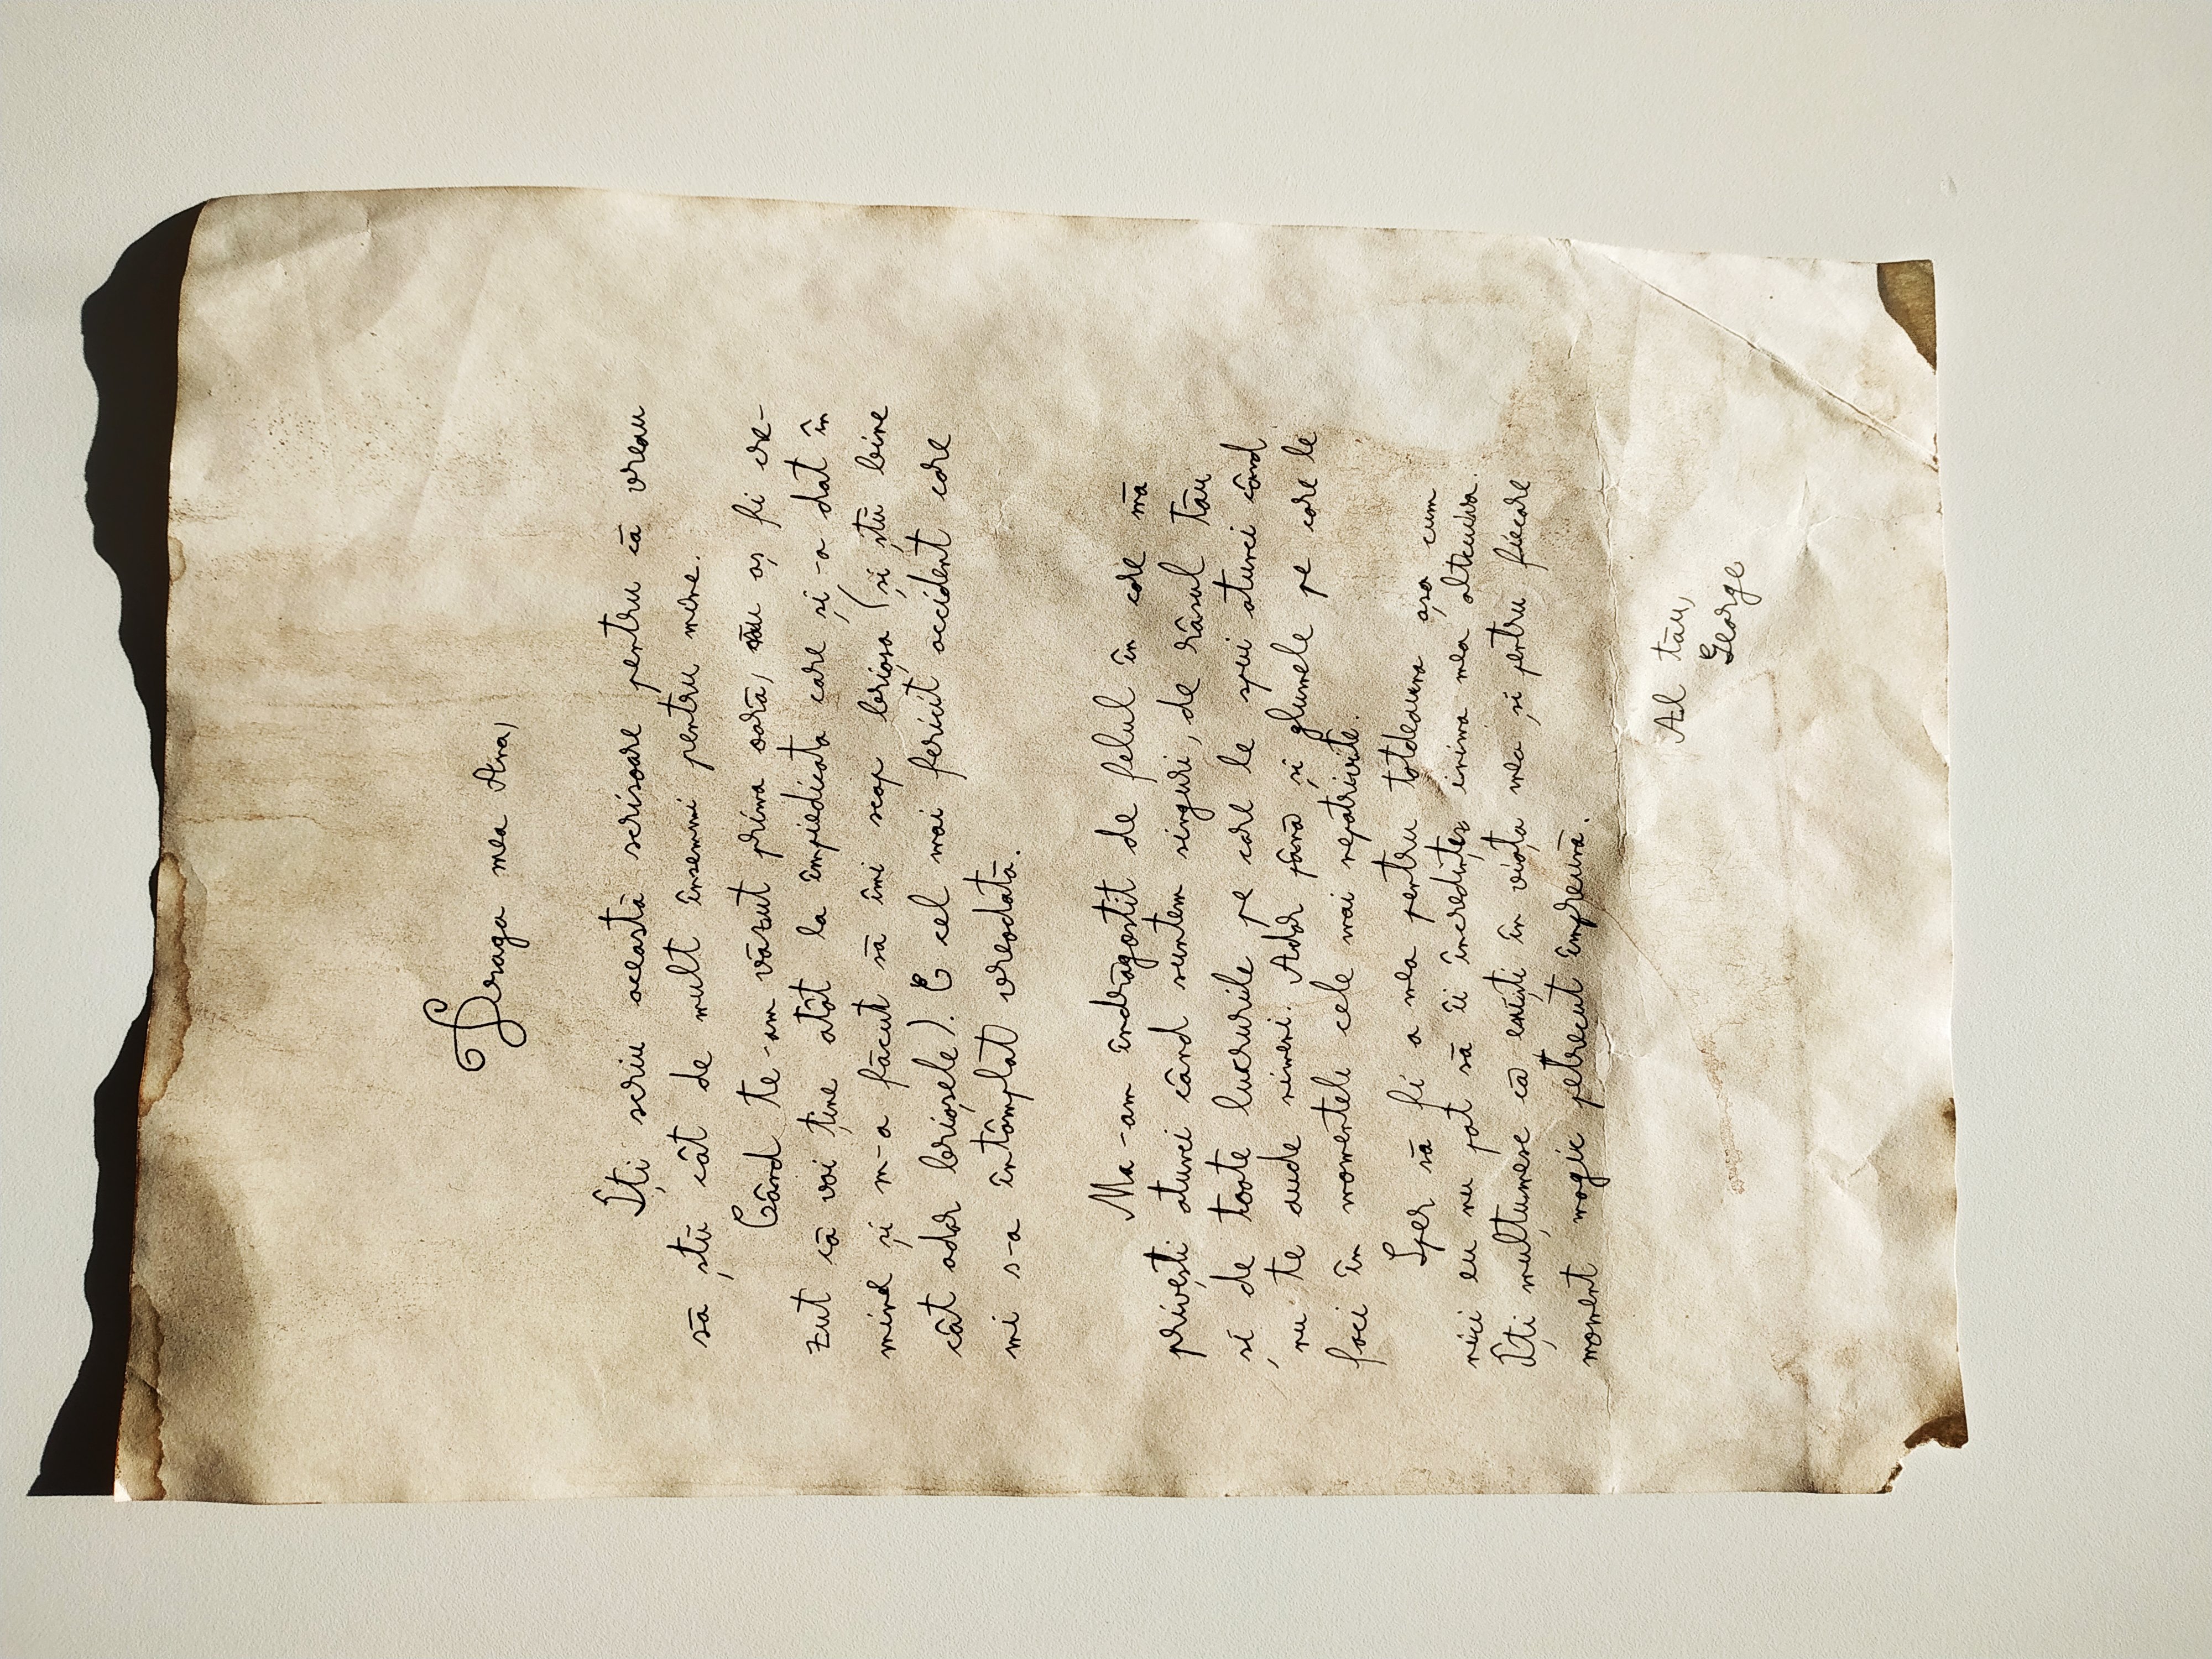 Draga mea Ana,
Îți scriu această scrisoare pentru că vreau
să știi cât de mult însemni pentru mine.
Când te-am văzut prima oară, nu aș fi cre-
zut că voi ține atât la împiedicata care și-a dat în
mine și m-a făcut să îmi scap brioșa (și știi bine
cât ador brioșele). E cel mai fericit accident care
mi s-a întâmplat vreodată.
Ma-am îndrăgostit de felul în care mă
privești atunci când suntem singuri, de râsul tău
și de toate lucrurile pe care le spui atunci când
nu te aude nimeni. Ador până și glumele pe care le
faci în momentele cele mai nepotrivite.
Sper să fi a mea pentru totdeauna așa cum
nici eu nu pot să îi încredințez inima mea altcuiva.
Îți mulțumesc că exiști în viața mea și pentru fiecare
moment magic petrecut împreună.
Al tău,
George